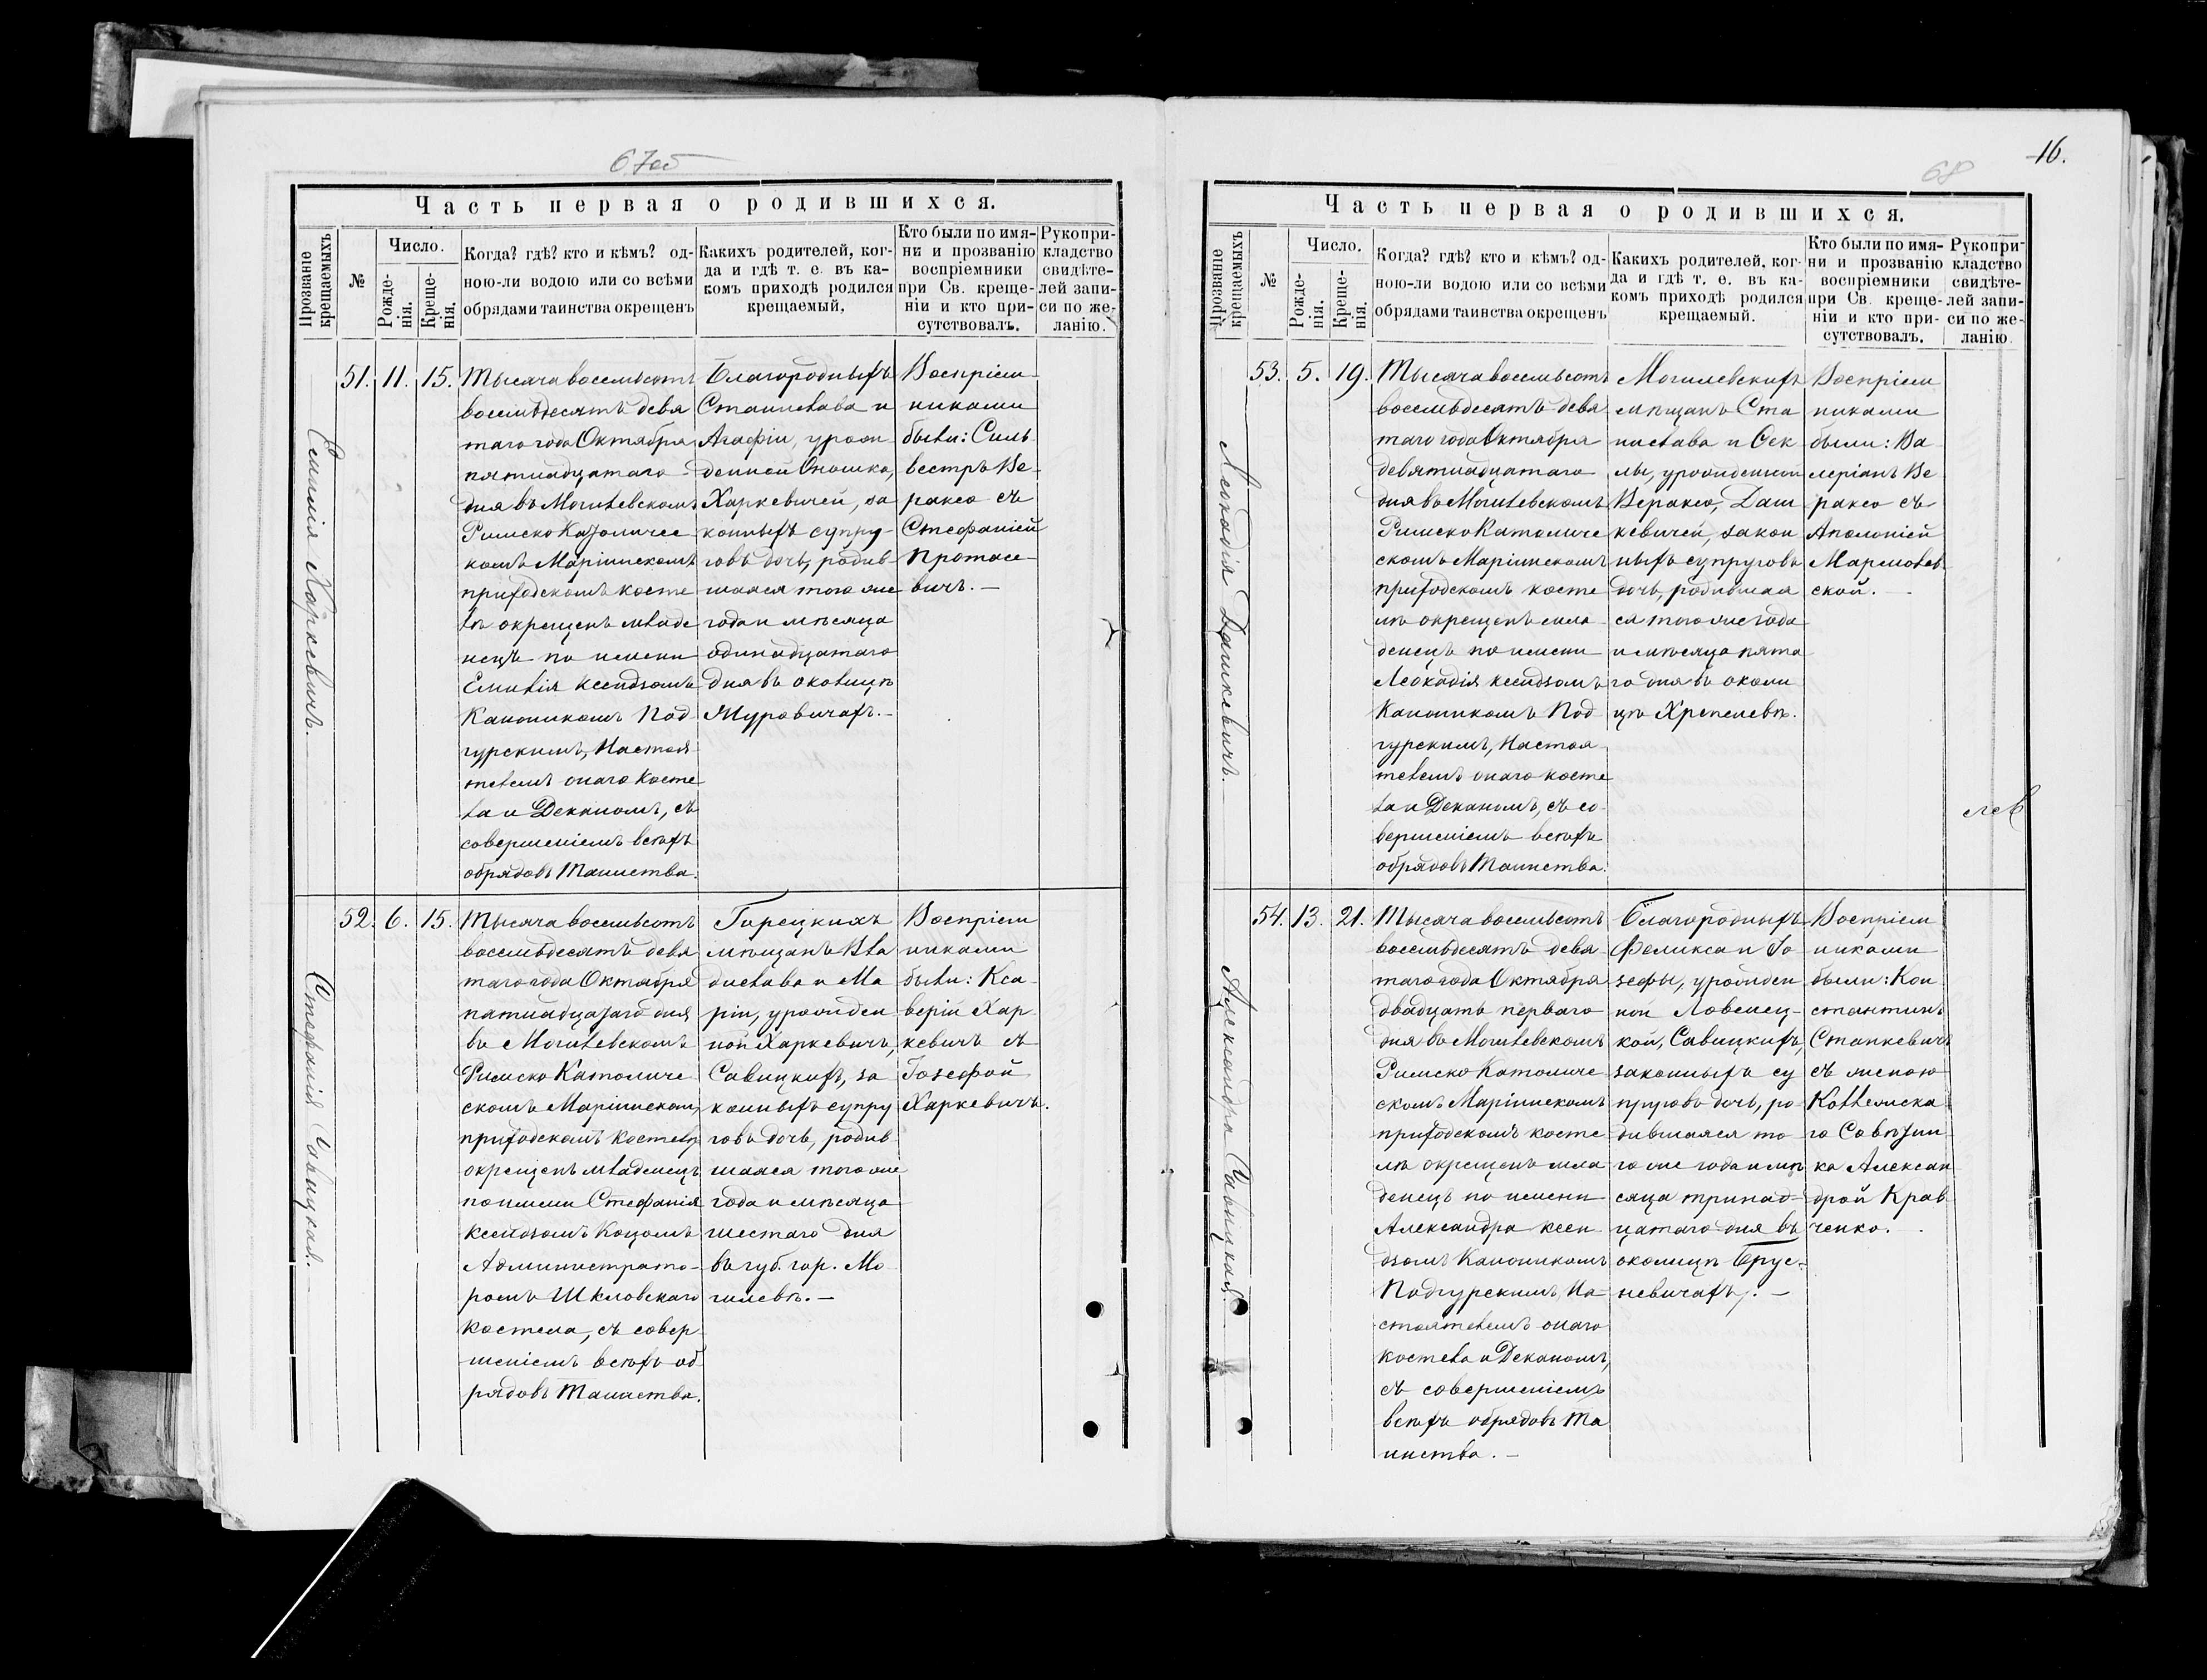 67об
Часть первая о родившихся.
Прозваніе
крещаемыхъ
№
Число.
Рожде-
нія.
Креще-
нія.
Когда? гдѣ? кто и кѣмъ? од-
ною-ли водою или со всѣми
обрядами таинства окрещенъ
Какихъ родителей, ког-
да и гдѣ т. е. въ ка-
комъ приходѣ родился
крещаемый.
Кто были по имя-
ни и прозванію
воспріемники
при Св. креще-
ніи и кто при-
сутствовалъ.
Рукопри-
кладство
свидѣте-
лей запи-
си по же-
ланію.
Емилія Харкевичъ.
51. 11. 15.
Тысяча восемьсотъ
восемьдесятъ девя
таго года Октября
пятнадцатаго
дня въ Могилевскомъ
Римско Католичес
комъ Маріинскомъ
приходскомъ косте
лѣ окрещенъ младе
нецъ по имени
Емилія ксендзомъ
Каноникомъ Под
гурскимъ, Настоя
телемъ онаго Косте
ла и Деканомъ, съ
совершеніемъ всѣхъ
обрядовъ Таинства.
Благородныхъ
Станислава и
Агафіи, урож
денной Оношко,
Харкевичей, за
конныхъ супру-
говъ дочь, родив
шаяся того же
года и мѣсяца
одинадцатаго
дня въ околицѣ
Журовичахъ.-
Воспріем
никами
были: Силь
вестръ Ве-
раксо съ
Стефаніей
Протасе
вичъ. —
Стефанія Савицкая.
52. 6. 15.
Тысяча восемьсотъ
восемьдесятъ девя
таго года Октября
пятнадцатаго дня
въ Могилевскомъ
Римско Католиче
скомъ Маріинскомъ
приходскомъ костелѣ
окрещенъ младенецъ
по имени Стефанія
ксендзомъ Коцомъ
Администрато-
ромъ Шкловскаго
костела, съ совер
шеніемъ всѣхъ об
рядовъ Таинства.
Горецкихъ
мѣщанъ Вла
дислава и Ма
ріи, урожден
ной Харкевичъ,
Савицкихъ, за
конныхъ супру
говъ дочь, родив
шаяся того же
года и мѣсяца
шестаго дня
въ губ. гор. Мо
гилевѣ. —
Воспріем
никами
были: Кса-
верій Хар
кевичъ съ
Іозефой
Харкевичъ.
16.
68
Часть первая о родившихся.
Прозваніе
крещаемыхъ
№
Число.
Рожде-
нія.
Креще-
нія.
Когда? гдѣ? кто и кѣмъ? од-
ною-ли водою или со всѣми
обрядами таинства окрещенъ
Какихъ родителей, ког-
да и гдѣ т. е. въ ка-
комъ приходѣ родился
крещаемый.
Кто были по имя-
ни и прозванію
воспріемники
при Св. креще-
ніи и кто при-
сутствовалъ.
Рукопри-
кладство
свидѣте-
лей запи-
си по же-
ланію
Леокадія Дашкевичъ.
53. 5. 19.
Тысяча восемьсотъ
восемьдесятъ девя
таго года Октября
девятнадцатаго
дня въ Могилевскомъ
Римско Католиче
скомъ Маріинскомъ
приходскомъ косте
лѣ окрещенъ мла
денецъ по имени
Леокадія ксендзомъ
Каноникомъ Под
гурскимъ, Настоя
телемъ онаго косте
ла и Деканомъ, съ со
вершеніемъ всѣхъ
обрядовъ Таинства.
Могилевскихъ
мѣщанъ Ста
нислава и Оек
лы, урожденной
Вераксо, Даш
кевичей, закон
ныхъ супруговъ
дочь, родившая
ся того же года
и мѣсяца пята
го дня въ околи
цѣ Хрепелевѣ.
Воспріем
никами
были: Ва
леріанъ Ве
раксо съ
Аполоніей
Мармолев
ской. -
лев
Александра Савицкая.
54. 13. 21.
Тысяча восемьсотъ
восемьдесятъ девя
таго года Октября
двадцать перваго
дня въ Могилевскомъ
Римско Католиче
скомъ Маріинскомъ
приходскомъ косте
лѣ окрещенъ мла
денецъ по имени
Александра ксен
дзомъ Каноникомъ
Подгурскимъ, На
стоятелемъ онаго
костела и Деканомъ,
съ совершеніемъ
всѣхъ обрядовъ Та
инства. —
Благородныхъ
Феликса и Іо
зефы, урожден
ной Ловенец-
кой, Савицкихъ,
законныхъ су
пруговъ дочь, ро
дившаяся то
го же года и мѣ
сяца тринад-
цатаго дня въ
околицѣ Брус-
невичахъ. —
Воспріем
никами
были: Кон
стантинъ
Станкевичъ
съ женою
Коллежска
го Совѣтни
ка Александ
рой Крав
ченко.